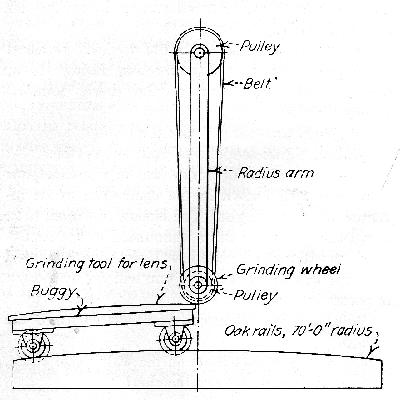 Pulley
Belt
Radius arm
Grinding tool for lens
Grinding wheel
Buggy
Pulley
Oak rails, 70'-0" radius